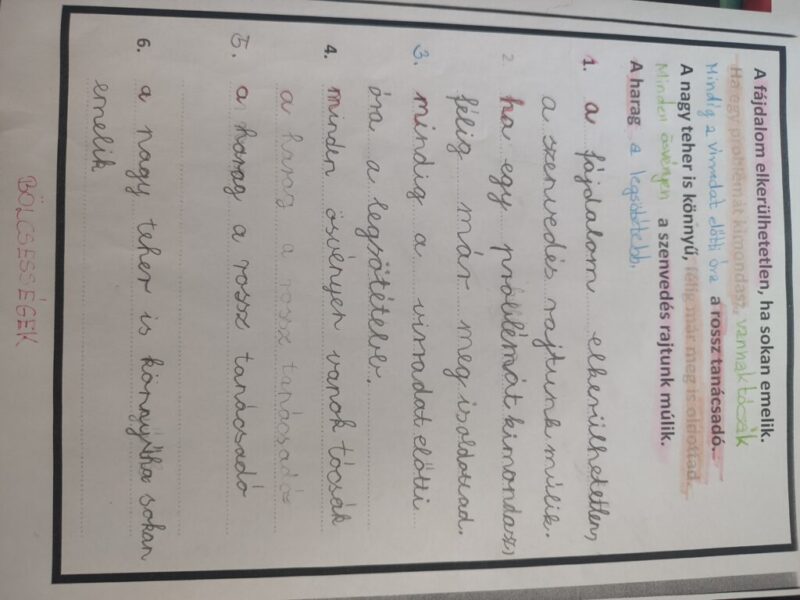 A fájdalom elkerülhetetlen, ha sokan emelik.
Ha egy problémát kimondasz, vannak tócsák
Mindig a virradat előtti óra a rossz tanácsadó.
A nagy teher is könnyű, félig már meg is oldottad.
Minden ösvényen a szenvedés rajtunk múlik.
A harag a legsötétebb.
1. a fájdalom elkerülhetetlen,
a szenvedés rajtunk múlik.
2. ha egy problémát kimondasz,
félig már meg is oldottad.
3. mindig a virradat előtti
óra a legsötétebb.
4. minden ösvényen vanok tócsák
a harag a rossz tanácsadó
5. a harag a rossz tanácsadó
6. a nagy teher is könnyű ha sokan
emelik
BÖLCSESSÉGEK